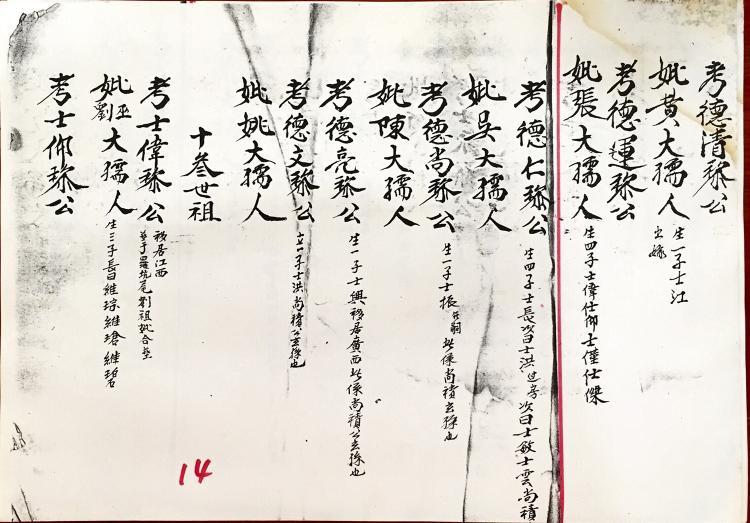 考德清㻐公
妣黄大孺人 生一子士江
出嫁
考德運㻐公
妣張大孺人 生四子士偉仕仰士僅仕傑
考德仁㻐公 生四子士長次曰士洪过房次曰士敏士雲尚積
妣吴大孺人
考德尚㻐公 生一子士振 此係尚積玄孫也
妣陳大孺人
考德亮㻐公 生一子士興移居廣西此係尚積公玄孫也
考德文㻐公 立一子士洪尚積公玄孫也
妣姚大孺人
十叁世祖
考士偉㻐公 移居江西
葬于羅坑尾劉祖妣合墓
妣巫劉大孺人 生三子長曰維琮維瓊維碧
考士仰㻐公
14